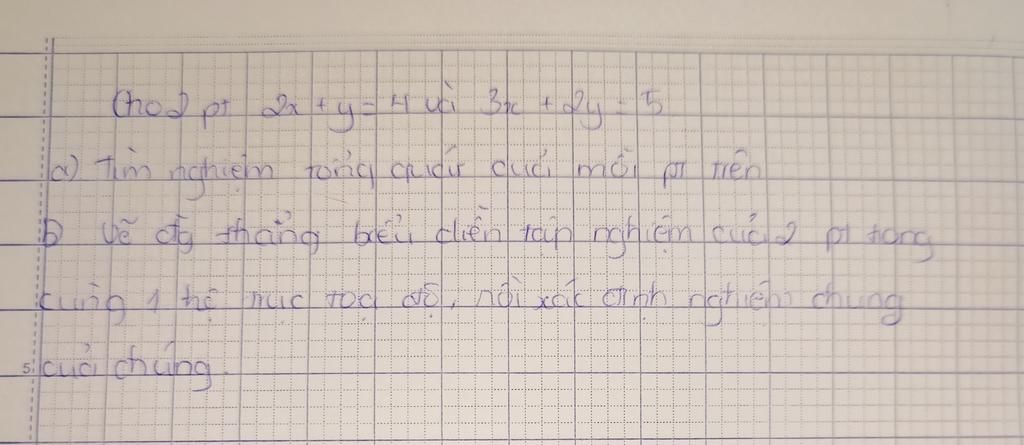 Cho 2 pt 2x + y = 4 và 3x + 2y = 5
a) Tìm nghiệm tổng quát của mỗi pt trên
b Vẽ đg thẳng biểu diễn tập nghiệm của 2 pt trong
cùng 1 hệ trục toạ độ, rồi xác định nghiệm chung
5 của chúng.